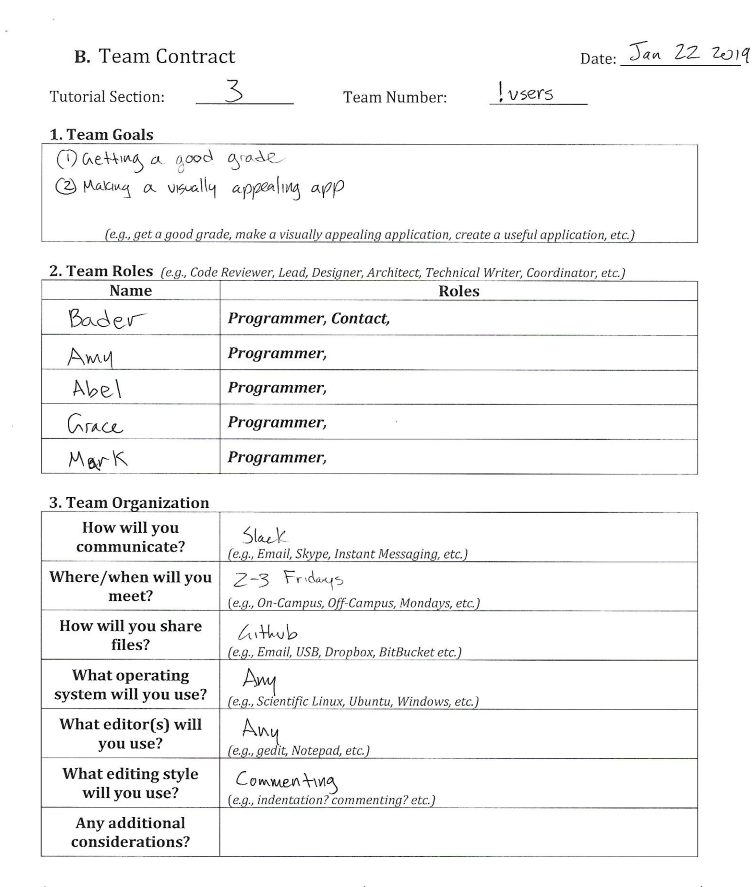 B. Team Contract
Date: Jan 22 2019
Tutorial Section: 3 Team Number: !users
1. Team Goals
(1) Getting a good grade
(2) Making a visually appealing app
(e.g., get a good grade, make a visually appealing application, create a useful application, etc.)
2. Team Roles (e.g., Code Reviewer, Lead, Designer, Architect, Technical Writer, Coordinator, etc.)
Name Roles
Bader Programmer, Contact,
Amy Programmer,
Abel Programmer,
Grace Programmer,
Mark Programmer,
3. Team Organization
How will you communicate?
Slack
(e.g., Email, Skype, Instant Messaging, etc.)
Where/when will you meet?
2-3 Fridays
(e.g., On-Campus, Off-Campus, Mondays, etc.)
How will you share files?
Github
(e.g., Email, USB, Dropbox, BitBucket etc.)
What operating system will you use?
Any
(e.g., Scientific Linux, Ubuntu, Windows, etc.)
What editor(s) will you use?
Any
(e.g., gedit, Notepad, etc.)
What editing style will you use?
Commenting
(e.g., indentation? commenting? etc.)
Any additional considerations?